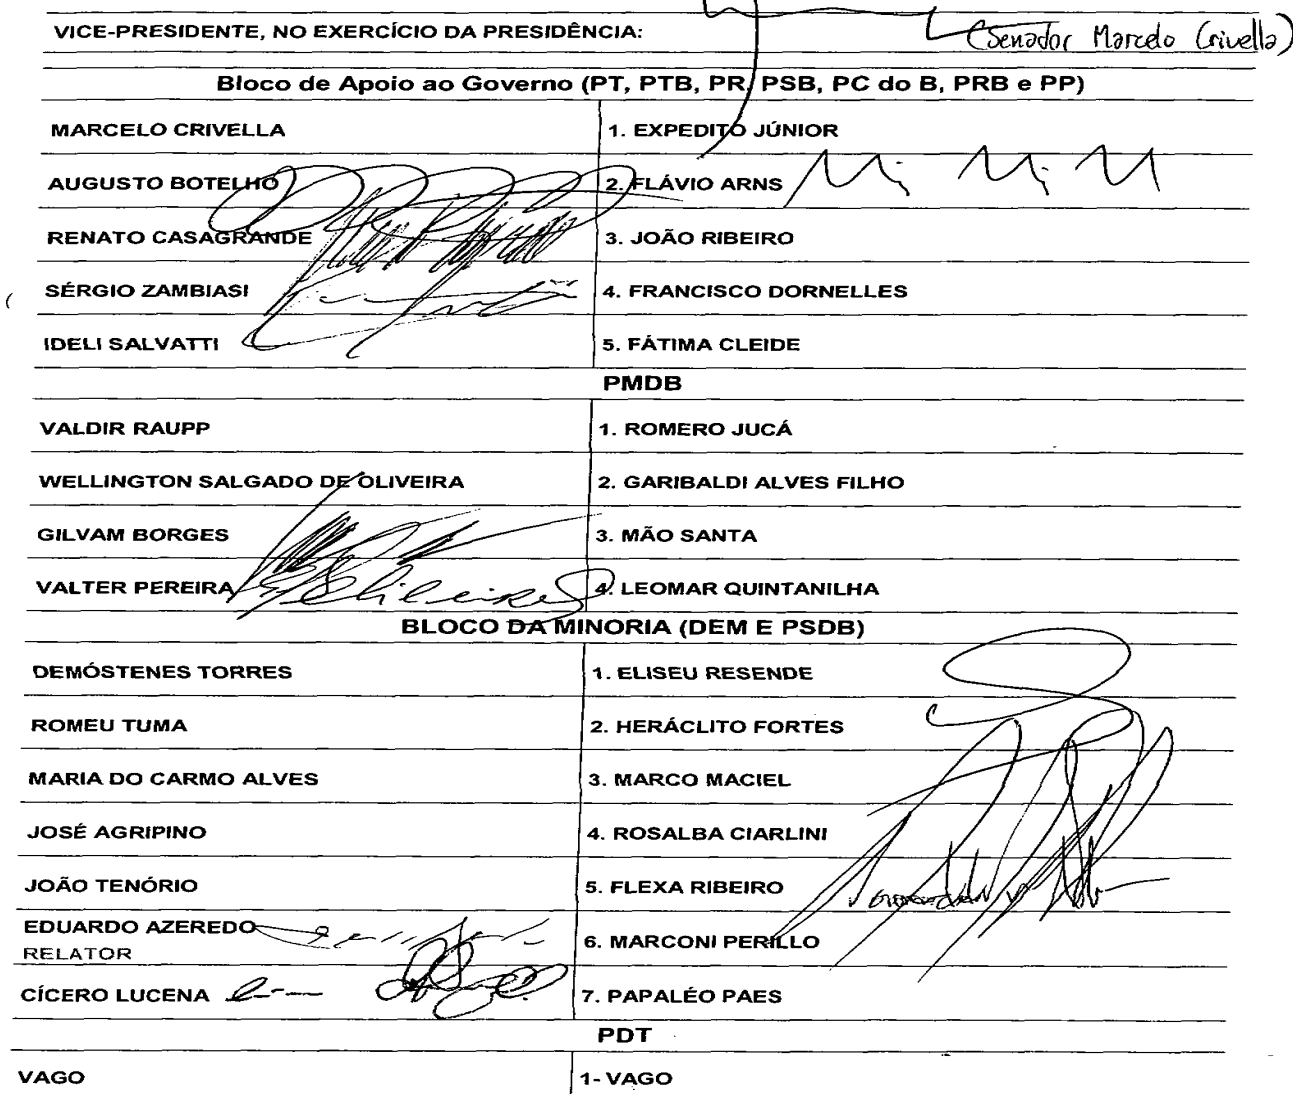 VICE-PRESIDENTE, NO EXERCÍCIO DA PRESIDÊNCIA: (Senador Marcelo Crivella)
Bloco de Apoio ao Governo (PT, PTB, PR, PSB, PC do B, PRB e PP)
MARCELO CRIVELLA 1. EXPEDITO JÚNIOR
AUGUSTO BOTELHO 2. FLÁVIO ARNS
RENATO CASAGRANDE 3. JOÃO RIBEIRO
SÉRGIO ZAMBIASI 4. FRANCISCO DORNELLES
IDELI SALVATTI 5. FÁTIMA CLEIDE
PMDB
VALDIR RAUPP 1. ROMERO JUCÁ
WELLINGTON SALGADO DE OLIVEIRA 2. GARIBALDI ALVES FILHO
GILVAM BORGES 3. MÃO SANTA
VALTER PEREIRA 4. LEOMAR QUINTANILHA
BLOCO DA MINORIA (DEM E PSDB)
DEMÓSTENES TORRES 1. ELISEU RESENDE
ROMEU TUMA 2. HERÁCLITO FORTES
MARIA DO CARMO ALVES 3. MARCO MACIEL
JOSÉ AGRIPINO 4. ROSALBA CIARLINI
JOÃO TENÓRIO 5. FLEXA RIBEIRO
EDUARDO AZEREDO 6. MARCONI PERILLO
RELATOR
CÍCERO LUCENA 7. PAPALÉO PAES
PDT
VAGO 1- VAGO